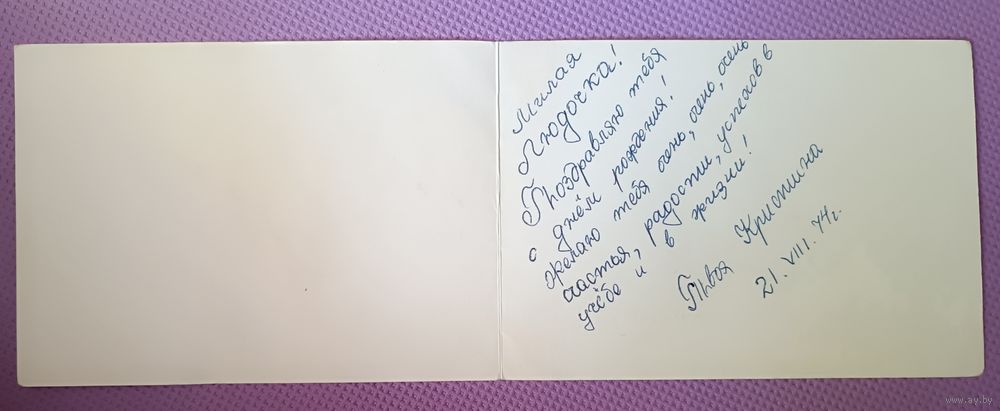 Милая
Людочка!
Поздравляю тебя
с днём рождения!
желаю тебя очень, очень, очень
счастья, радости, успехов в
учёбе и в жизни!
Твоя Кристина
21. VIII. 74г.
www.ay.by